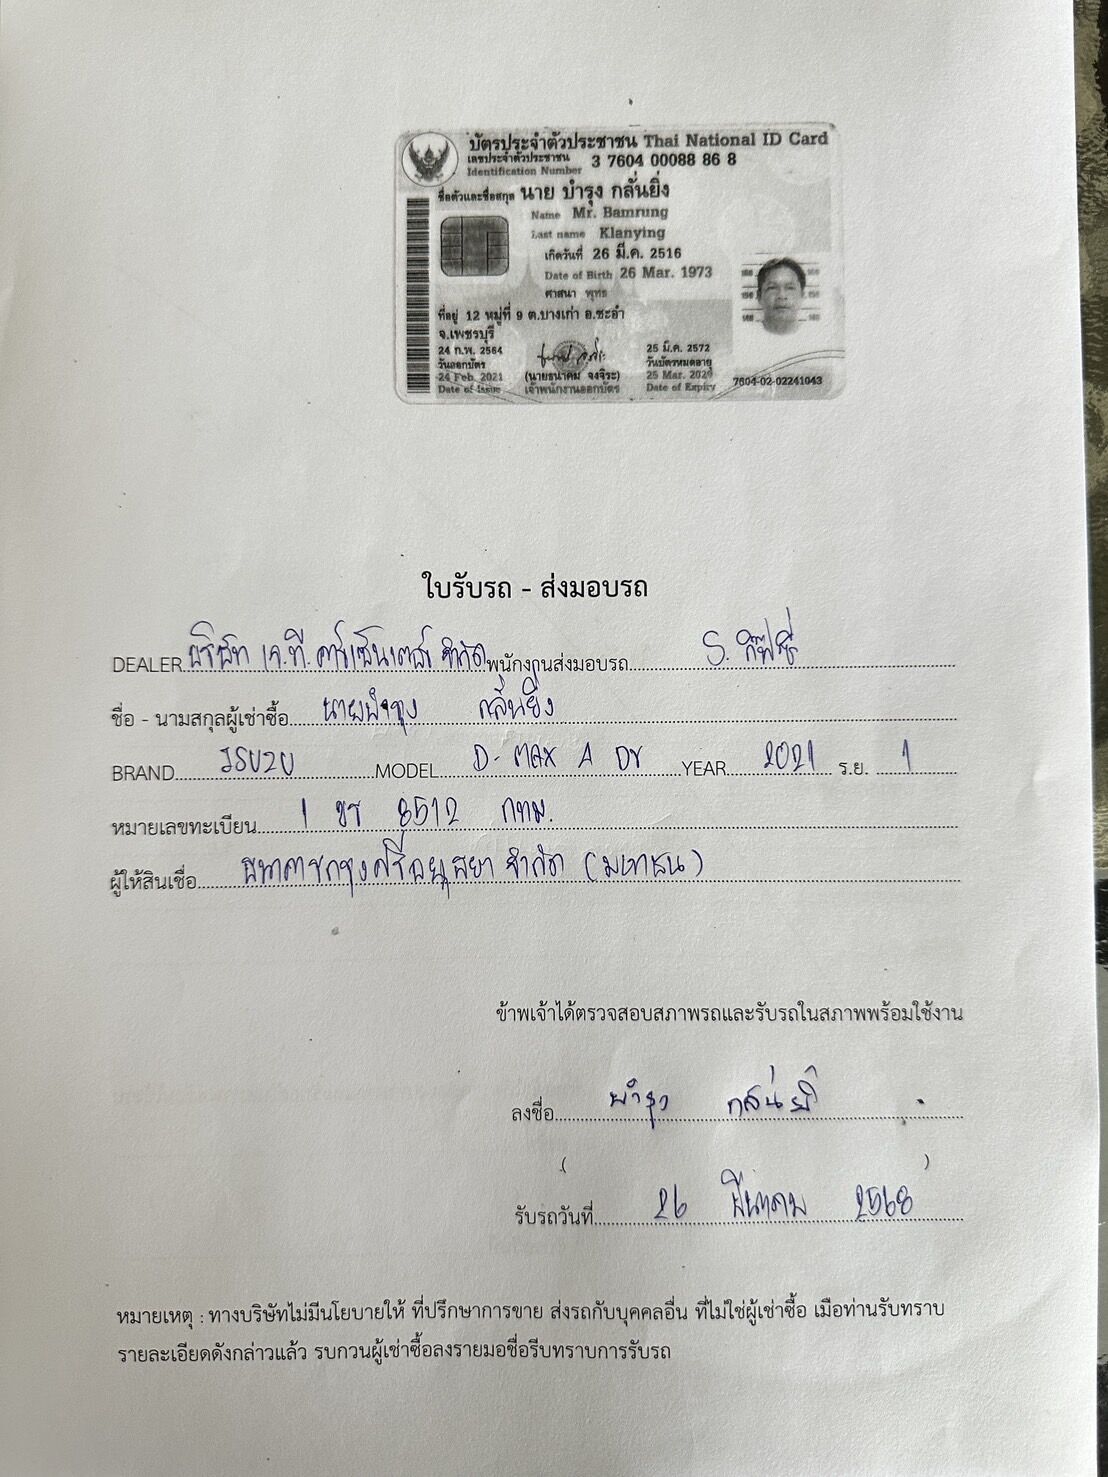 บัตรประจำตัวประชาชน Thai National ID Card
เลขประจำตัวประชาชน 3 7604 00088 86 8
Identification Number
ชื่อตัวและชื่อสกุล นาย บำรุง กลั่นยิ่ง
Name Mr. Bamrung
Last name Klanying
เกิดวันที่ 26 มี.ค. 2516
Date of Birth 26 Mar. 1973
ศาสนา พุทธ
ที่อยู่ 12 หมู่ที่ 9 ต.บางเก่า อ.ชะอำ
จ.เพชรบุรี
24 ก.พ. 2564 25 มี.ค. 2572
วันออกบัตร วันบัตรหมดอายุ
24 Feb. 2021 (นายธนาคม จงจิระ) 25 Mar. 2029
Date of Issue เจ้าพนักงานออกบัตร Date of Expiry 7604-02-02241043
ใบรับรถ - ส่งมอบรถ
DEALER บริษัท เจ.ที.คาร์เซ็นเตอร์ จำกัด พนักงานส่งมอบรถ S.
ชื่อ - นามสกุลผู้เช่าซื้อ นายบำรุง กลั่นยิ่ง
BRAND ISUZU MODEL D-MAX A DY YEAR 2021 ร.ย. 1
หมายเลขทะเบียน 1 ขร 8512 กทม.
ผู้ให้สินเชื่อ ธนาคารกรุงศรีอยุธยา จำกัด (มหาชน)
ข้าพเจ้าได้ตรวจสอบสภาพรถและรับรถในสภาพพร้อมใช้งาน
ลงชื่อ บำรุง กลั่นยิ่
( )
รับรถวันที่ 26 มีนาคม 2568
หมายเหตุ : ทางบริษัทไม่มีนโยบายให้ ที่ปรึกษาการขาย ส่งรถกับบุคคลอื่น ที่ไม่ใช่ผู้เช่าซื้อ เมื่อท่านรับทราบ
รายละเอียดดังกล่าวแล้ว รบกวนผู้เช่าซื้อลงรายมอชื่อรีบทราบการรับรถ